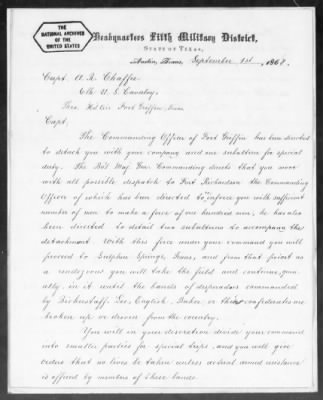 THE
NATIONAL ARCHIVES
OF THE
UNITED STATES
Headquarters Fifth Military District,
STATE OF TEXAS,
Austin, Texas, September 1st, 1868.
Capt. A. R. Chaffee
6th U. S. Cavalry,
Thro. Hd Qrs Fort Griffin, Texas
Capt,
The Commanding Officer of Fort Griffin has been directed
to detach you with your company and one subaltern for special
duty. The Bvt Maj Gen Commanding directs that you move
with all possible dispatch to Fort Richardson the Commanding
Officer of which has been directed to inforce you with sufficient
number of men to make a force of one hundred men; he has also
been directed to detail two subalterns to accompany the
detachment. With this force under your command you will
proceed to Sulphur Springs, Texas, and from that point as
a rendezvous you will take the field and continue,
in it until the bands of desperadoes commanded
by Bickerstaff, Lee, English, Baker, or their confederates are
broken up or driven from the country.
You will in your discretion divide your command
into smaller parties for special trips, and you will give
orders that no lives be taken unless actual armed resistance
is offered by members of these bands